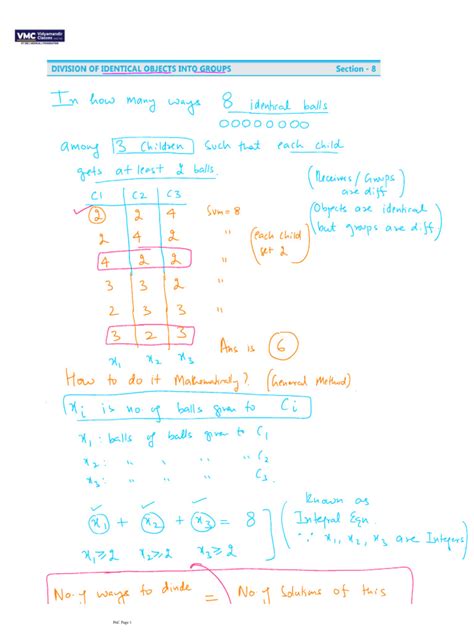 VMC Vidyamandir Classes
DIVISION OF IDENTICAL OBJECTS INTO GROUPS Section - 8
In how many ways 8 identical balls
among 3 children such that each child
gets at least 2 balls.
(Receivers/Groups are diff)
(Objects are identical but groups are diff)
C1 C2 C3
2 2 4 Sum = 8
2 4 2 "
4 2 2 "
(each child get 2)
3 3 2 "
2 3 3 "
3 2 3
x1 x2 x3 Ans is 6
How to do it Mathematically? (General Method)
xi is no of balls given to Ci
x1 : balls of balls given to C1
x2 : " " " " C2
x3 : " " " " C3.
x1 + x2 + x3 = 8
x1≥2 x2≥2 x3≥2
(known as
Integral Eqn.
∵ x1, x2, x3 are Integers)
No. of ways to divide = No. of solutions of this
PnC Page 1